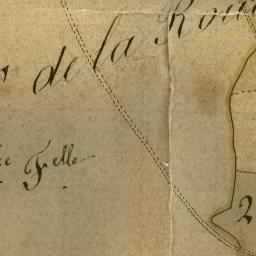 de la Rou
Felle
2